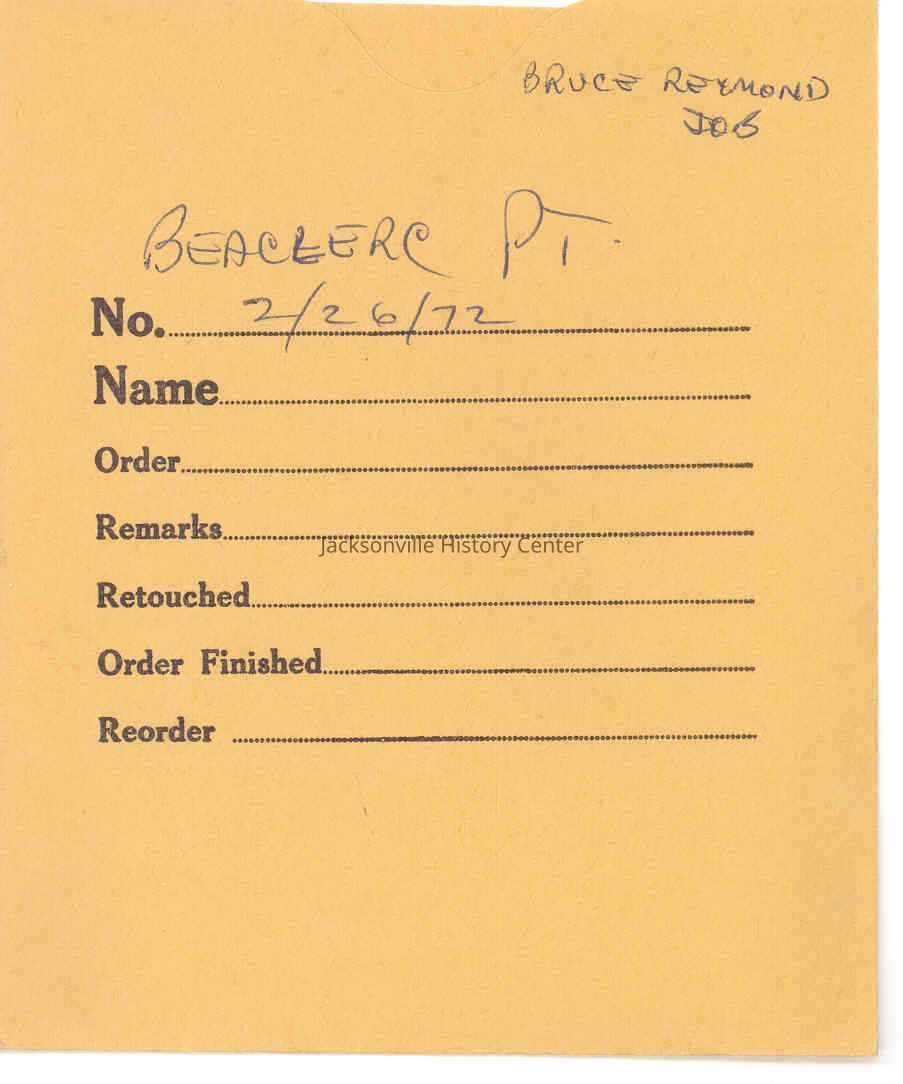 BRUCE REYMOND
JOB
BEACLERC PT.
No. 2/26/72
Name
Order
Remarks
Jacksonville History Center
Retouched
Order Finished
Reorder